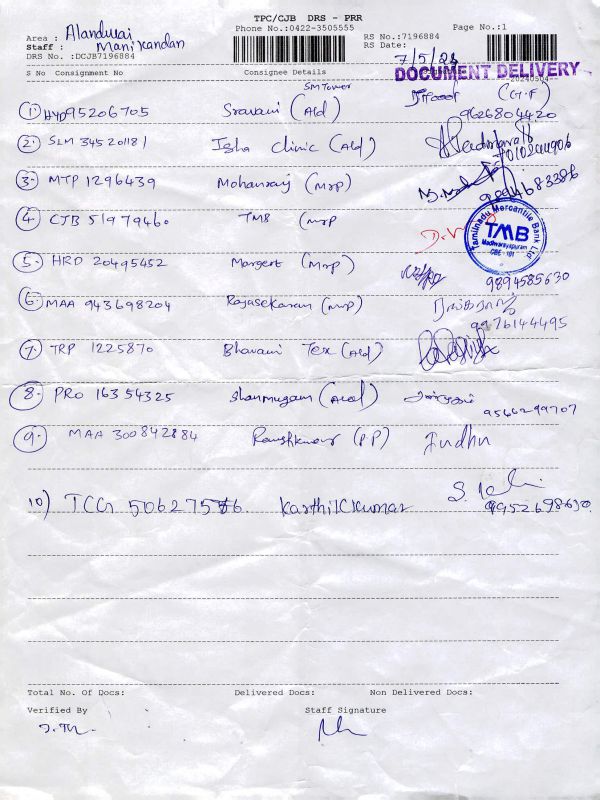 TPC/CJB DRS - PRR
Phone No.:0422-3505555
Page No.:1
Area : Alandurai
Staff : Manikandan
DRS No. :DCJB7196884
RS No.:7196884
RS Date:
7/5/24
DOCUMENT DELIVERY
S No Consignment No Consignee Details
SM Tower
1 HYD95206705 Sravani (Ald) (G.F)
9626804420
2. SLM 345201181 Isha clinic (Ald)
3. MTP 1296439 Mohanraj (mrp)
4. CJB 51979460 TMB (mrp
Tamilnadu Mercantile Bank Ltd
TMB
Madhvarayapuram
CBE - 101
5. HRD 20495452 Margert (mrp)
9894585630
6. MAA 943698204 Rajasekaran (mrp)
9976144495
7. TRP 1225870 Bhavani Tex (Ald)
8. PRO 16354325 Shanmugam
9566299707
9. MAA 300842884 (PP) Indhu
10) TCG Karthikkumar
9952698630
Total No. Of Docs: Delivered Docs: Non Delivered Docs:
Verified By Staff Signature